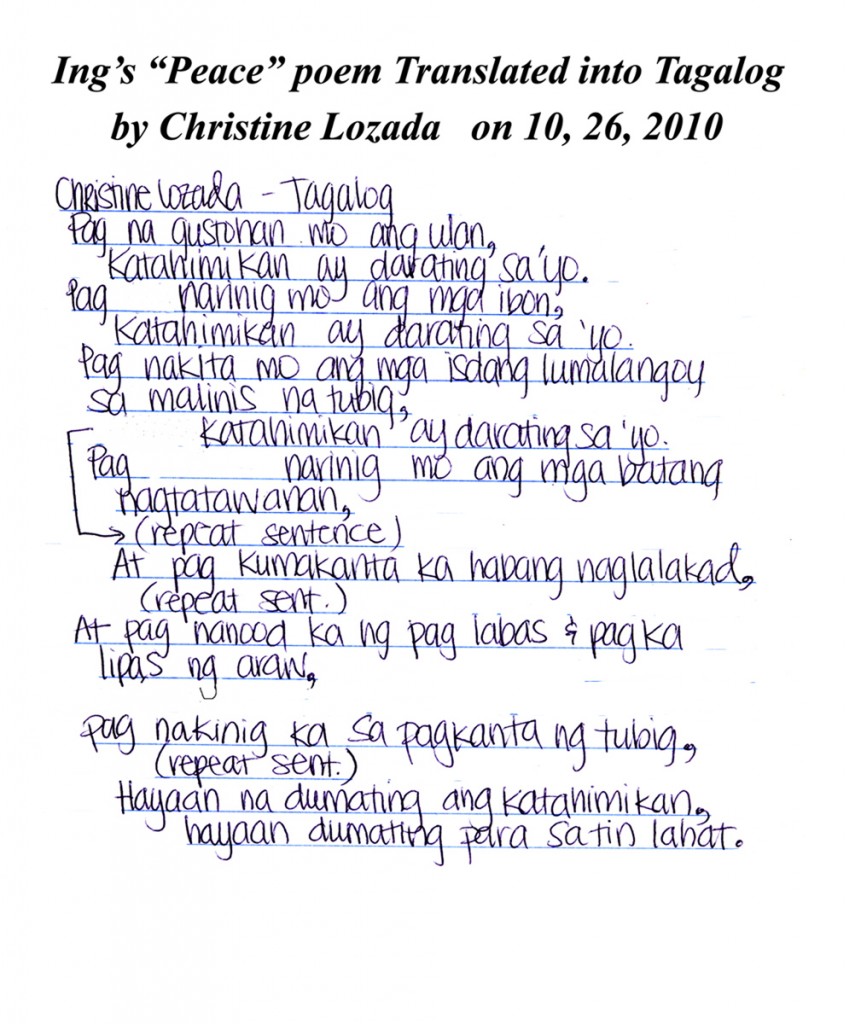 Ing's "Peace" poem Translated into Tagalog
by Christine Lozada on 10, 26, 2010
Christine Lozada - Tagalog
Pag na gustohan mo ang ulan,
Katahimikan ay darating sa 'yo.
Pag narinig mo ang mga ibon,
Katahimikan ay darating sa 'yo.
Pag nakita mo ang mga isdang lumalangoy
sa malinis na tubig,
Katahimikan ay darating sa 'yo.
Pag narinig mo ang mga batang
nagtatawanan,
(repeat sentence)
At pag kumakanta ka habang naglalakad,
(repeat sent.)
At pag nanood ka ng pag labas & pagka
lipas ng araw,
pag nakinig ka sa pagkanta ng tubig,
(repeat sent.)
Hayaan na dumating ang katahimikan,
hayaan dumating para satin lahat.